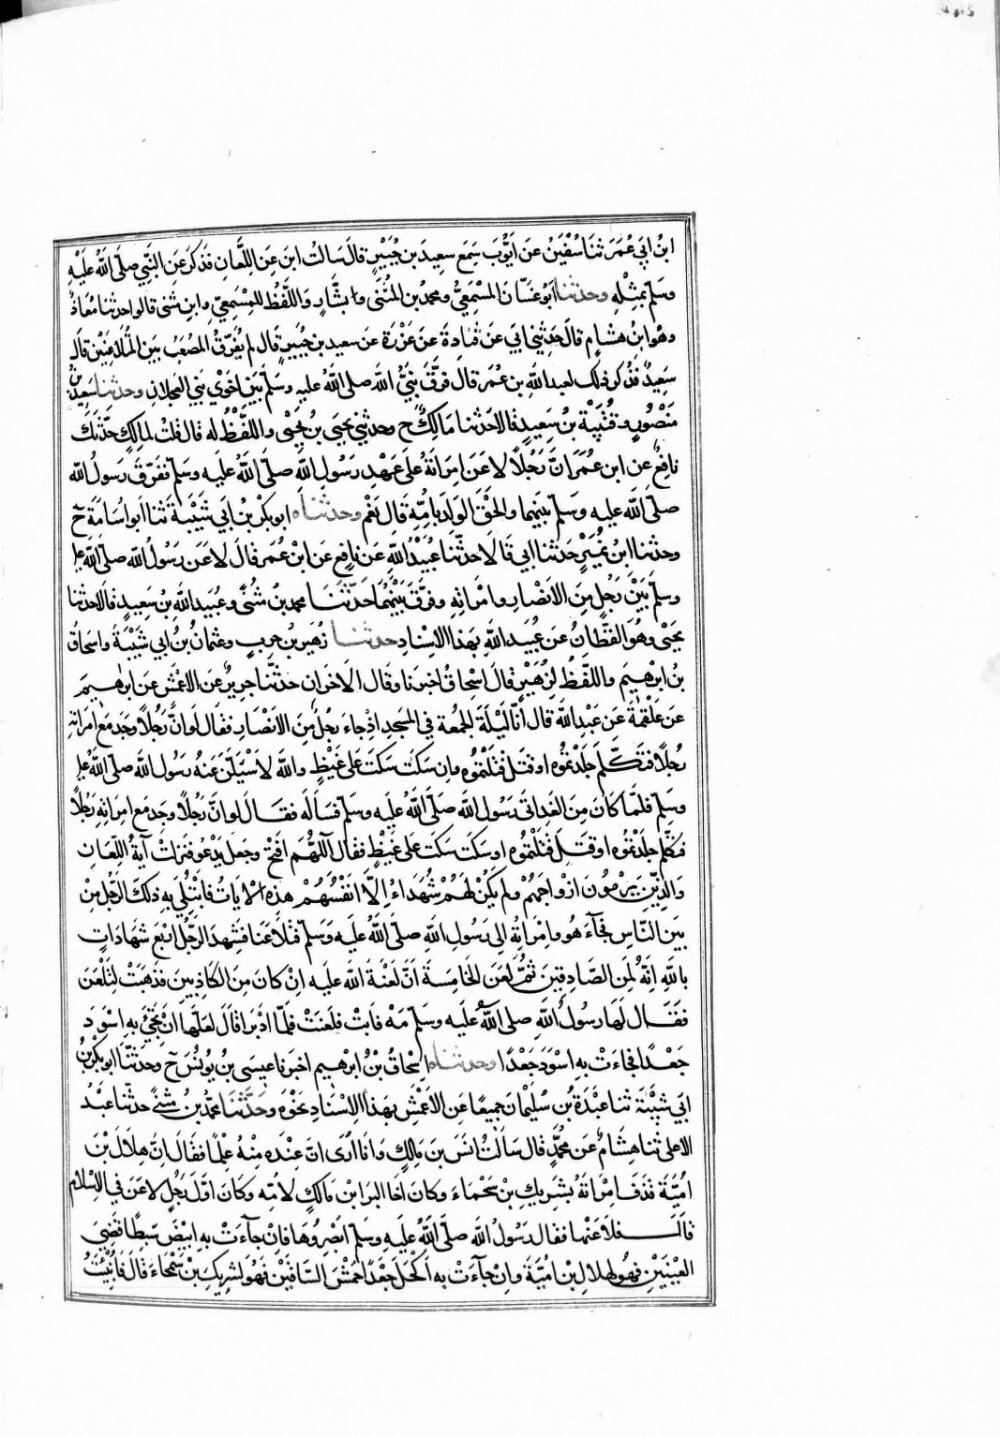 ابن ابي عُمَرَ ثنا سُفْيَنُ عَن اَيُّوبَ سَمِعَ سعِيدَ بن جُبَيْرٍ قالَ سَالتُ ابنَ عن اللِّعَانِ فَذكرَ عَنِ النَّبِيّ صلّى اللهُ عليْهِ
وسَلّمَ بمِثْلِهِ وحدثنا ابُو غَسّانَ المِسْمَعِيُّ ومحمدُ بن المُثنى وابن بَشَّارٍ وَاللَّفْظُ للمِسْمَعِيّ وابن مثنى قالوا حدثنا مُعَاذٌ
وهُوَ ابنُ هشامٍ قالَ حدَّثني ابي عَن قتَادةَ عَن عَزْرَةَ عَن سعيد بن جُبَيرٍ قال لم يُفَرّقْ المُصْعَبُ بينَ المُتَلاعِنَيْنِ قالَ
سَعِيدٌ فذُكر ذلك لعبد اللهِ بن عُمَرَ قال فَرَّقَ نبيُّ اللهِ صلى اللهُ عليهِ وسَلّمَ بينَ اخَوَيْ بَني العجلانِ وحدثنا سَعِيدُ بنُ
مَنْصُورٍ وقُتَيْبَةُ بنُ سَعِيدٍ قالا حَدثنا مَالِكٌ ح وحدثني يحيى بنُ يَحيَى واللَّفْظُ له قال قلتُ لمالِكٍ حَدَّثَكَ
نافِعٌ عن ابن عُمَرَ انَّ رَجُلًا لاعَنَ امرَاتَهُ على عَهْدِ رَسُولِ اللهِ صلّى اللهُ عليهِ وسَلّمَ ففَرّقَ رَسُولُ اللهِ
صلّى اللهُ عليهِ وسَلّمَ بينَهما والحَقَ الوَلَدَ بامِّهِ قَالَ نَعَمْ وحدثناه ابو بكر بن ابي شَيْبَةَ ثَنا ابو اسَامَةَ ح
وحدثنا ابنُ نُمَيْرٍ حَدثنا ابي قالَا حدثنا عُبَيْدُ اللهِ عَن نافِعٍ عَن ابن عُمَرَ قالَ لاعَنَ رَسُولُ اللهِ صلّى اللهُ عليه
وسلّمَ بَيْنَ رَجُلٍ مِنَ الانْصَارِ وامْرَاتِهِ وفَرَّقَ بَيْنَهُمَا حَدَّثَنَا محمدُ بن مُثَنًّى وعُبَيد اللهِ بنُ سَعِيدٍ قالا حَدثنا
يَحْيَى وهُوَ القَطَّانُ عن عُبَيدِ اللهِ بهَذا الاسْنادِ حدثنا زُهَيرُ بنُ حربٍ وعثمانُ بنُ ابي شَيْبَةَ واسحَاقُ
بنُ ابرهيمَ واللَّفْظُ لزُهَيْرٍ قالَ اسحَاقُ اخبرنا وقالَ الاخَرانِ حدثنا جريرٌ عن الاعمشِ عن ابرهيمَ
عَن علقمةَ عَن عَبْدِ اللهِ قالَ اَنَا لَيْلَةَ الجُمُعةِ في المسجدِ اذ جاءَ رَجُلٌ مِنَ الانْصَارِ فقالَ لَوانَّ رَجُلًا وجَدَ مَعَ امرَاتِهِ
رجُلًا فَتَكلّمَ جَلَدْتُمُوهُ او قتَلَ قتَلْتُمُوهُ وان سَكَتَ سَكَتَ على غَيْظٍ واللهِ لاسْئَلَنَّ عَنهُ رَسُولَ اللهِ صلّى اللهُ عليه
وسَلّمَ فلَمّا كانَ مِنَ الغَدِ اتى رَسُولَ اللهِ صَلّى اللهُ عليهِ وسَلّمَ فسَالَهُ فقـالَ لوانَّ رَجُلًا وجدَ مع امرَاتِهِ رَجُلًا
فتكلّمَ جلدْتمُوه او قتَلَ قتَلْتُمُوه او سَكَتَ سَكَتَ على غَيْظٍ فقال اللَّهُمَ افتحْ وجَعلَ يَدْعُو فنزلتْ آيةُ اللِّعَانِ
والذِّينَ يَرْمُونَ ازْوَاجَهُمْ ولم يَكُنْ لهمْ شُهَدَاءُ اِلّا انفُسُهُمْ هذهِ الايَاتُ فابْتُلِيَ بهِ ذلكَ الرَّجُلُ مِنْ
بين النّاسِ فجآءَ هُو وامرَاتُه الى رَسُولِ اللهِ صَلّى اللهُ عليهِ وَسَلّمَ فتلاعَنا فشهِدَ الرّجُلُ اربَعَ شَهَادَاتٍ
بالله انّهُ لَمِن الصّادِقينَ ثُمَّ لعَنَ الخامِسَةَ اَنَّ لَعْنَةَ اللهِ عليهِ انْ كانَ مِنَ الكاذِبينَ فذهَبَتْ لِتَلْعَنَ
فَقَـالَ لها رسولُ اللهِ صلى اللهُ عليهِ وسلّمَ مَهْ فابَتْ فلَعَنَتْ فلَمّا ادْبَرا قالَ لعَلّها انْ تَجِيْءَ بهِ اسْوَدَ
جَعْـدًا فجاءَتْ بهِ اسْوَدَ جَعْدًا وحدثناه اِسْحَاقُ بنُ ابرهيم اخبرنا عِيسى بنُ يُونُسَ ح وحدثنا ابو بكر بنُ
ابي شَيْبَةَ ثنا عَبْدَةُ بن سُلَيْمانَ جميعًا عَنِ الاعْمَشِ بهَذا الاسْنَادِ نحْوَه وحَدَّثَنَا محمّدُ بنُ مثنى حدثنا عَبْدُ
الاعلى ثنا هِشَامٌ عَن محمّدٍ قال سَالْتُ انَسَ بنَ مالِكٍ وانا اُرى انّ عِنْدَه مِنْهُ عِلْمًا فقالَ اِنّ هِلَالَ بْنَ
امَيَّةَ قذفَ امْرَاتَهُ بشَرِيكِ بنِ سَحْماءَ وكانَ اخَا البرَا ابنِ مَالكٍ لامّهِ وكانَ اوّلَ رَجُلٍ لاعَنَ في الاِسْلامِ
قَالَ فلاعَنَها فقال رَسُولُ اللهِ صَلّى اللهُ عليهِ وسَلّمَ ابْصِرُوها فَاِنْ جآءَتْ بهِ ابْيَضَ سَبِطًا قَضِيَ
العَيْنَيْنِ فهُو لهلالِ بْنِ اميَّةَ وانْ جآءَتْ به اَكْحَلَ جَعْدًا حَمْشَ السّاقَيْنِ فهُوَ لشَرِيكِ بْنِ سَحْماءَ قالَ فأُنْبِئْتُ